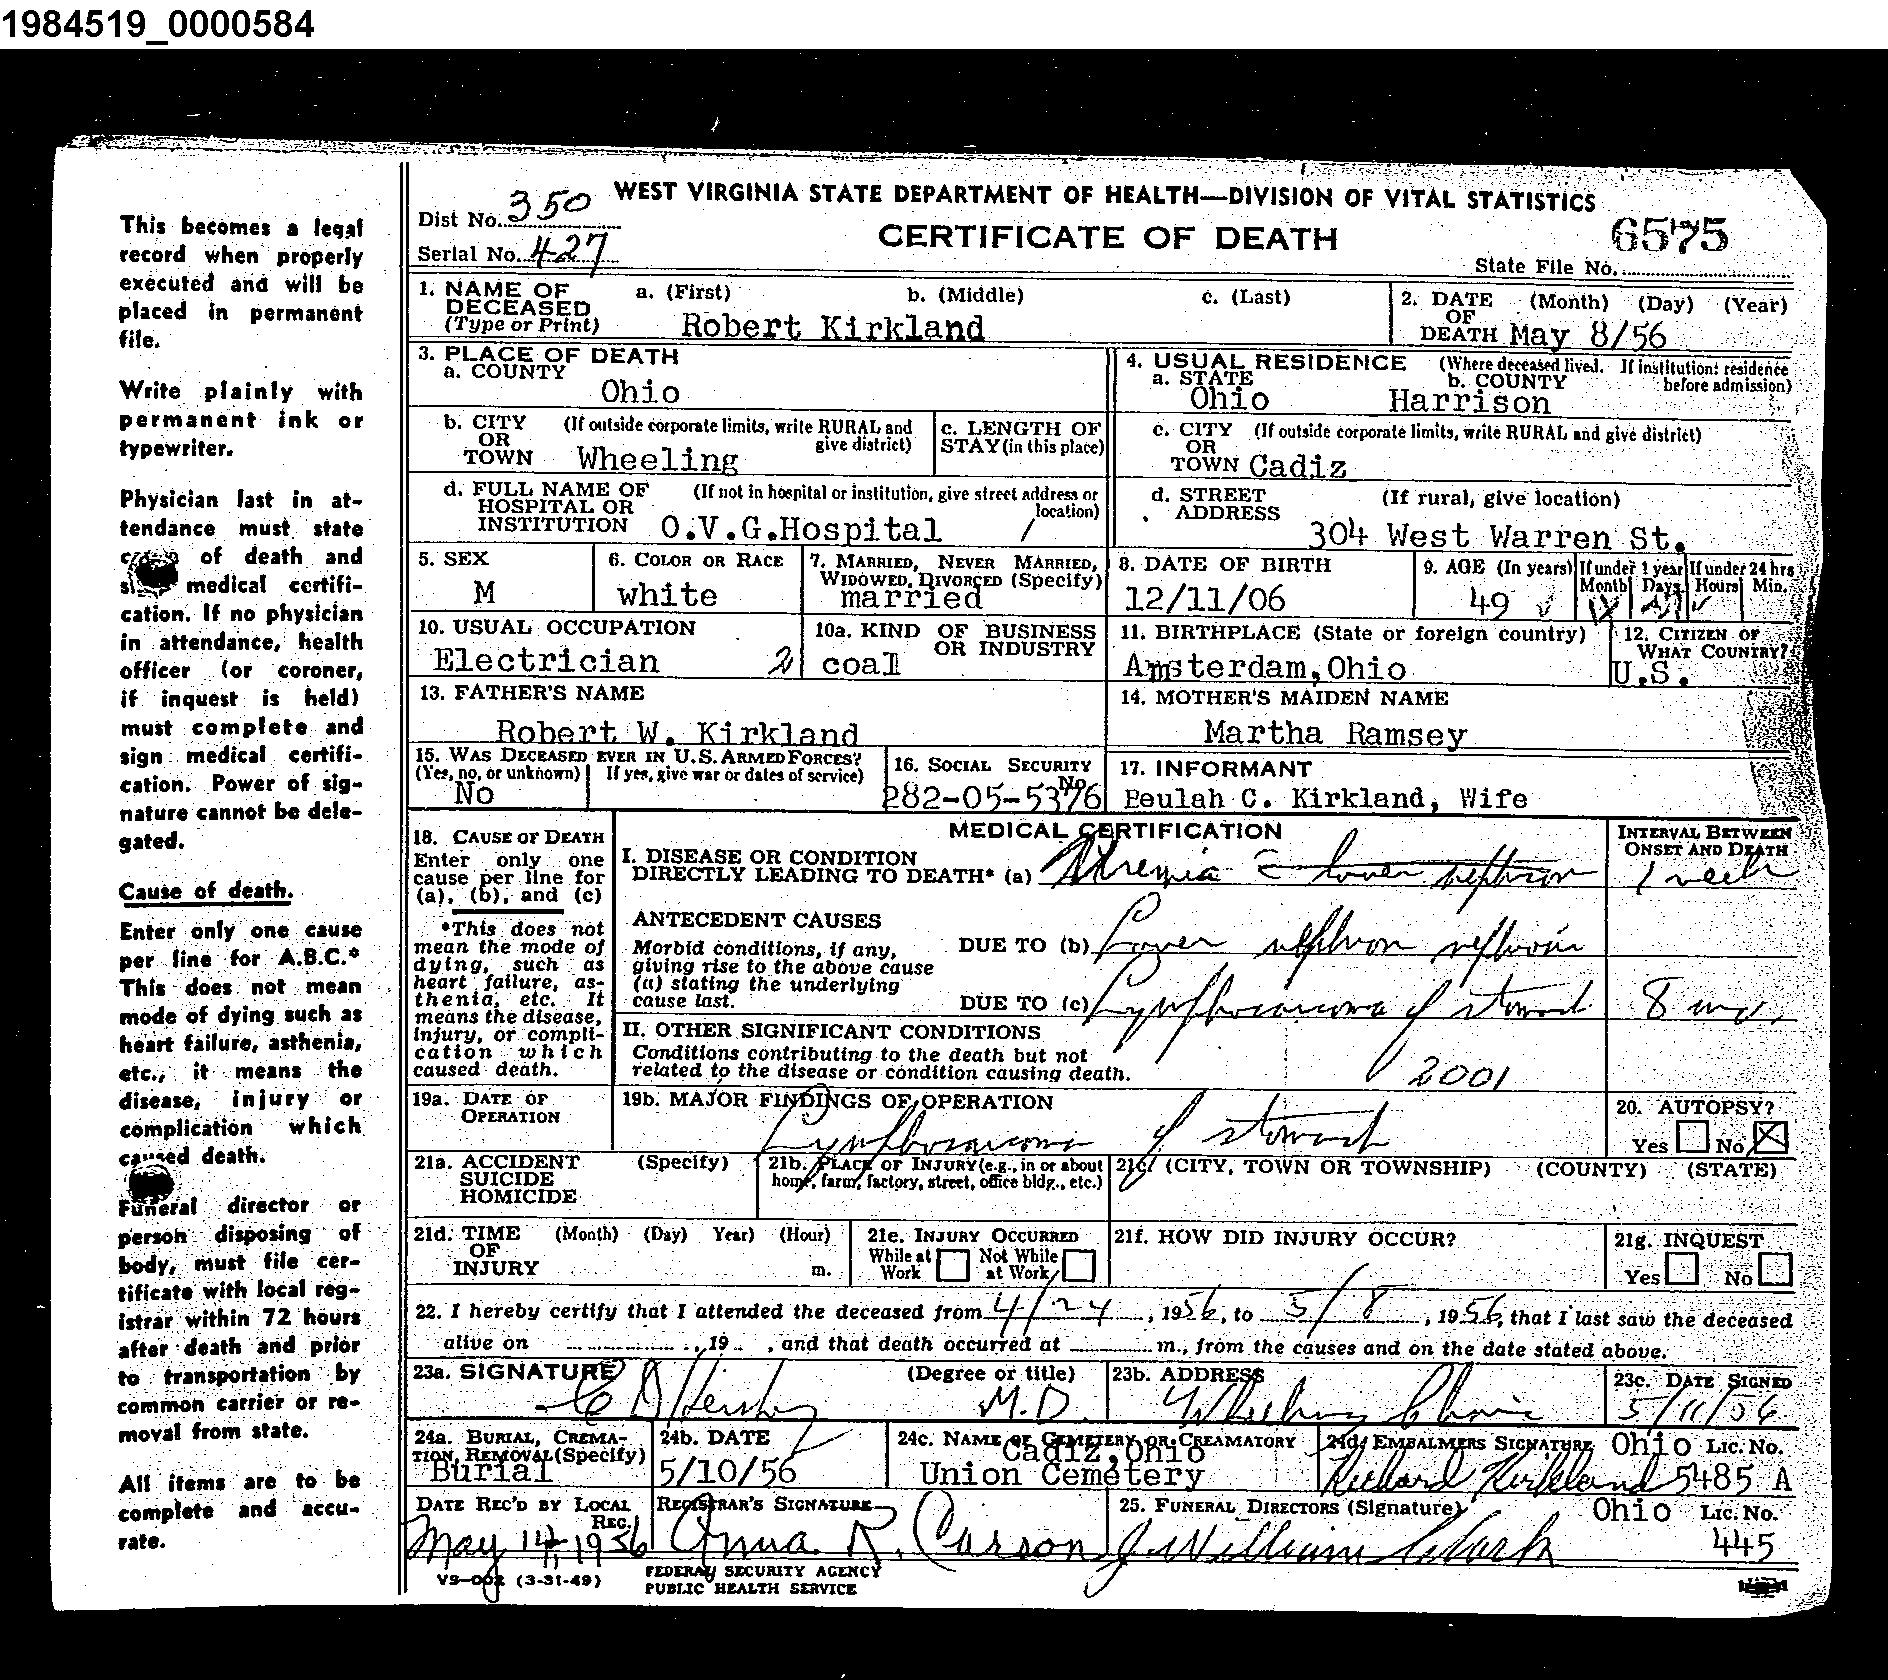 1984519_0000584
This becomes a legal
record when properly
executed and will be
placed in permanent
file.
Write plainly with
permanent ink or
typewriter.
Physician last in at-
tendance must state
of death and
medical certifi-
cation. If no physician
in attendance, health
officer (or coroner,
if inquest is held)
must complete and
sign medical certifi-
cation. Power of sig-
nature cannot be dele-
gated.
Cause of death.
Enter only one cause
per line for A.B.C.*
This does not mean
mode of dying such as
heart failure, asthenia,
etc., it means the
disease, injury or
complication which
caused death.
Funeral director or
person disposing of
body, must file cer-
tificate with local reg-
istrar within 72 hours
after death and prior
to transportation by
common carrier or re-
moval from state.
All items are to be
complete and accu-
rate.
WEST VIRGINIA STATE DEPARTMENT OF HEALTH—DIVISION OF VITAL STATISTICS
Dist No. 350
CERTIFICATE OF DEATH
6575
Serial No. 427
State File No.
1. NAME OF DECEASED (Type or Print) a. (First) b. (Middle) c. (Last)
Robert Kirkland
2. DATE OF DEATH (Month) (Day) (Year)
May 8/56
3. PLACE OF DEATH
a. COUNTY
Ohio
4. USUAL RESIDENCE (Where deceased lived. If institution: residence before admission)
a. STATE b. COUNTY
Ohio Harrison
b. CITY OR TOWN (If outside corporate limits, write RURAL and give district)
Wheeling
c. LENGTH OF STAY (in this place)
c. CITY OR TOWN (If outside corporate limits, write RURAL and give district)
Cadiz
d. FULL NAME OF HOSPITAL OR INSTITUTION (If not in hospital or institution, give street address or location)
O.V.G.Hospital /
d. STREET ADDRESS (If rural, give location)
304 West Warren St.
5. SEX
M
6. COLOR OR RACE
white
7. MARRIED, NEVER MARRIED, WIDOWED, DIVORCED (Specify)
married
8. DATE OF BIRTH
12/11/06
9. AGE (In years)
49
If under 1 year Month Days
If under 24 hrs Hours Min.
10. USUAL OCCUPATION
Electrician 2
10a. KIND OF BUSINESS OR INDUSTRY
coal
11. BIRTHPLACE (State or foreign country)
Amsterdam,Ohio
12. CITIZEN OF WHAT COUNTRY?
U.S.
13. FATHER'S NAME
Robert W. Kirkland
14. MOTHER'S MAIDEN NAME
Martha Ramsey
15. WAS DECEASED EVER IN U.S. ARMED FORCES?
(Yes, no, or unknown) If yes, give war or dates of service)
No
16. SOCIAL SECURITY No.
282-05-5376
17. INFORMANT
Beulah C. Kirkland, Wife
MEDICAL CERTIFICATION
18. CAUSE OF DEATH
Enter only one
cause per line for
(a), (b), and (c)
*This does not
mean the mode of
dying, such as
heart failure, as-
thenia, etc. It
means the disease,
injury, or compli-
cation which
caused death.
INTERVAL BETWEEN ONSET AND DEATH
I. DISEASE OR CONDITION
DIRECTLY LEADING TO DEATH* (a) Uremia c lower nephron 1 week
ANTECEDENT CAUSES
Morbid conditions, if any,
giving rise to the above cause
(a) stating the underlying
cause last.
DUE TO (b) Lower nephron
DUE TO (c) Lymphosarcoma of stomach 8 mo.
II. OTHER SIGNIFICANT CONDITIONS
Conditions contributing to the death but not
related to the disease or condition causing death.
2001
19a. DATE OF OPERATION
19b. MAJOR FINDINGS OF OPERATION
Lymphosarcoma of stomach
20. AUTOPSY?
Yes No
21a. ACCIDENT SUICIDE HOMICIDE (Specify)
21b. PLACE OF INJURY (e.g., in or about home, farm, factory, street, office bldg., etc.)
21c. (CITY, TOWN OR TOWNSHIP) (COUNTY) (STATE)
21d. TIME OF INJURY (Month) (Day) Year) (Hour) m.
21e. INJURY OCCURRED
While at Work Not While at Work
21f. HOW DID INJURY OCCUR?
21g. INQUEST
Yes No
22. I hereby certify that I attended the deceased from 4/24, 1956, to 5/8, 1956, that I last saw the deceased
alive on , 19 , and that death occurred at m., from the causes and on the date stated above.
23a. SIGNATURE (Degree or title)
M.D.
23b. ADDRESS
Wheeling Clinic
23c. DATE SIGNED
5/11/56
24a. BURIAL, CREMATION, REMOVAL (Specify)
Burial
24b. DATE
5/10/56
24c. NAME OF CEMETERY OR CREAMATORY
Cadiz,Ohio
Union Cemetery
24d. EMBALMERS SIGNATURE Ohio LIC. NO.
Richard Kirkland 5485 A
DATE REC'D BY LOCAL REG.
May 14, 1956
REGISTRAR'S SIGNATURE
Anna R. Carson
25. FUNERAL DIRECTORS (Signature) Ohio LIC. NO.
J. William Clark 445
VS-002 (3-31-49)
FEDERAL SECURITY AGENCY
PUBLIC HEALTH SERVICE